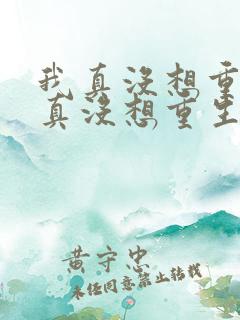 我真没想重
真没想重生
黄守忠
未经同意禁止转载